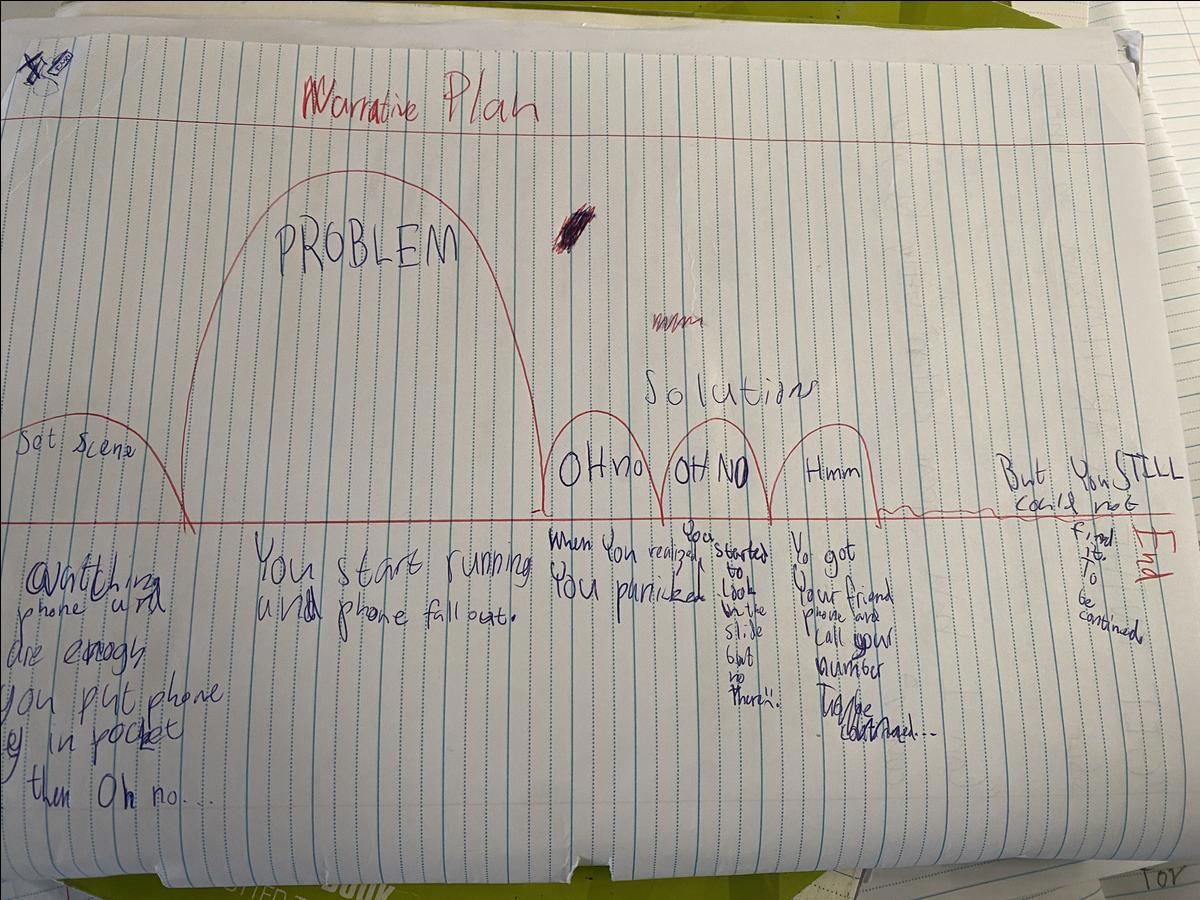 Narrative Plan
PROBLEM
Solutions
Set Scene
OH no
OH NO
Hmm
But You STILL
could not
find
it.
To
be
continued
End
watching
phone and
are enogh
you put phone
y in pocket
then Oh no...
You start running
and phone fall out.
When You realized,
You panicked
You
started
to
Look
in the
slide
but
no
there!!
Yo got
Your friend
phone and
call your
number
To be
continued...